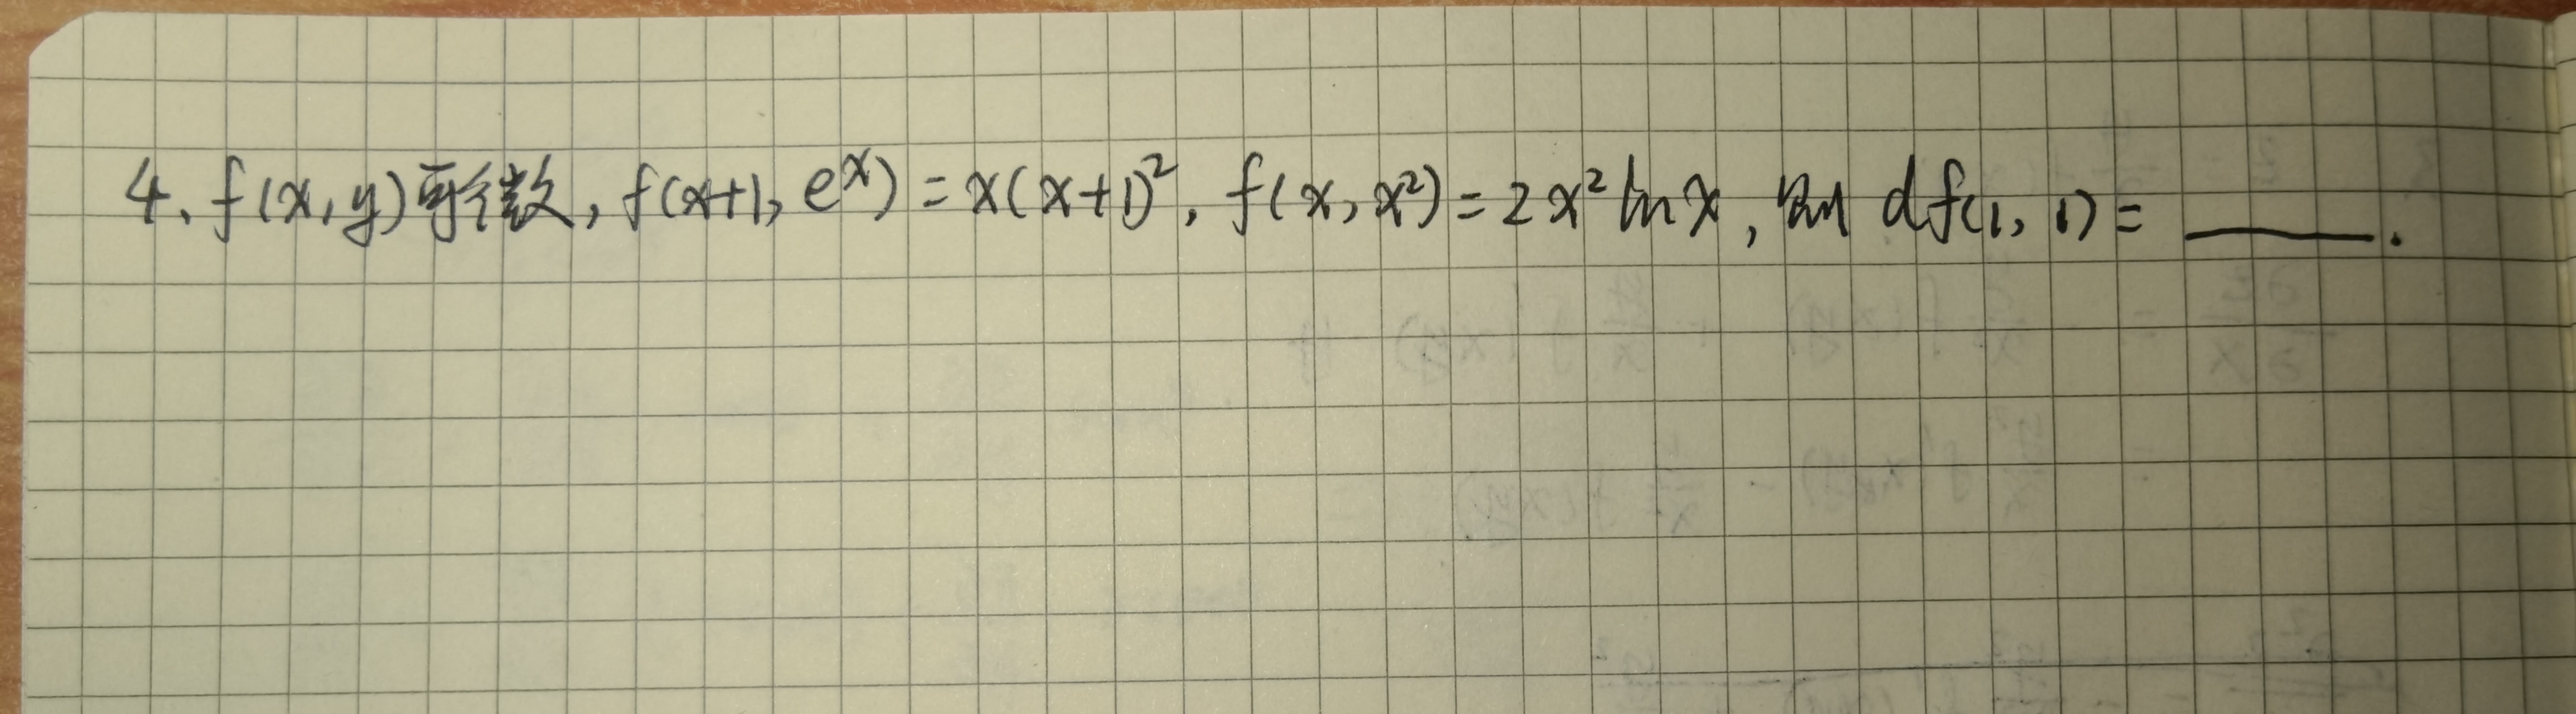 4. f(x,y)可微, f(x+1, eˣ) = x(x+1)², f(x, x²) = 2x² ln x, 则 df(1, 1) = ____.